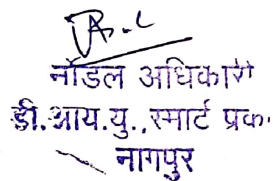 नोडल अधिकारी
डी.आय.यु., स्मार्ट प्रक.
नागपुर